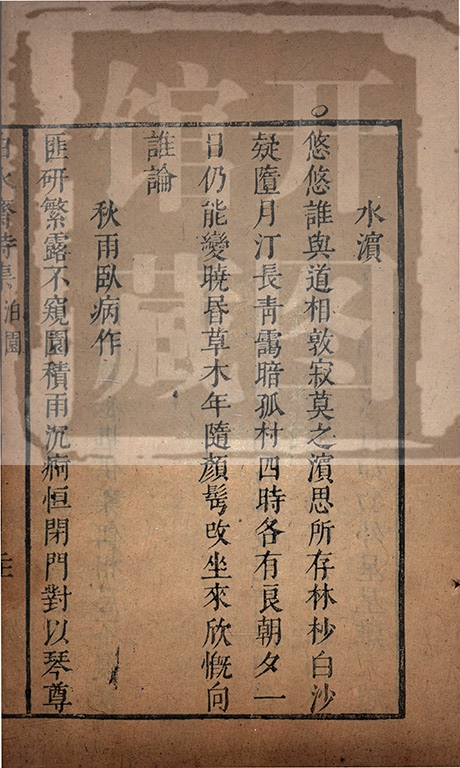 水濱
悠悠誰與道相敦寂莫之濱思所存林杪白沙
疑墮月汀長靑靄暗孤村四時各有良朝夕一
日仍能變曉昏草木年隨顏髩改坐來欣慨向
誰論
秋雨臥病作
匪研繁露不窺園積雨沉痾恒閉門對以琴尊
白水齋詩集 泊園
开图
馆藏